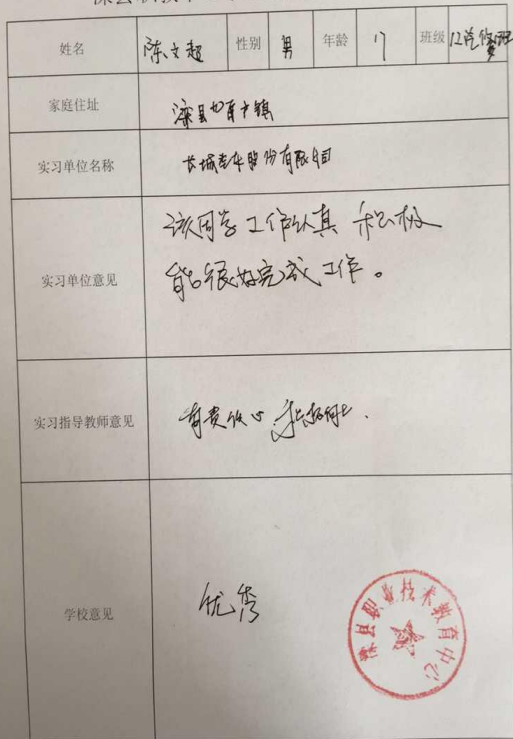 姓名 陈文超 性别 男 年龄 17 班级 12汽修班
家庭住址 滦县 镇
实习单位名称 长城汽车股份有限公司
该同学工作认真 积极
实习单位意见 能很好完成工作。
实习指导教师意见 有责任心 积极向上.
学校意见 优秀
滦县职业技术教育中心